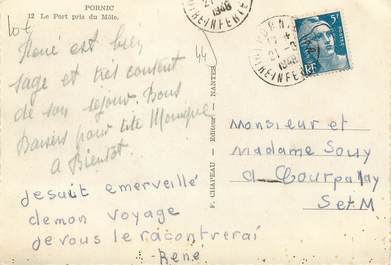 PORNIC
12 Le Port pris du Môle.
René est bien
sage et très content
de son sejour. Bons
Baisers pour tite Monique
A Bientot.
jesuit emerveillé
demon voyage
je vous le racontrerai
Rene
F. CHAPEAU - Editeur - NANTES
44
PORNIC
1948
INFRE
5F
POSTES
RF
Monsieur et
Madame Souy
a Courpalay
S et M